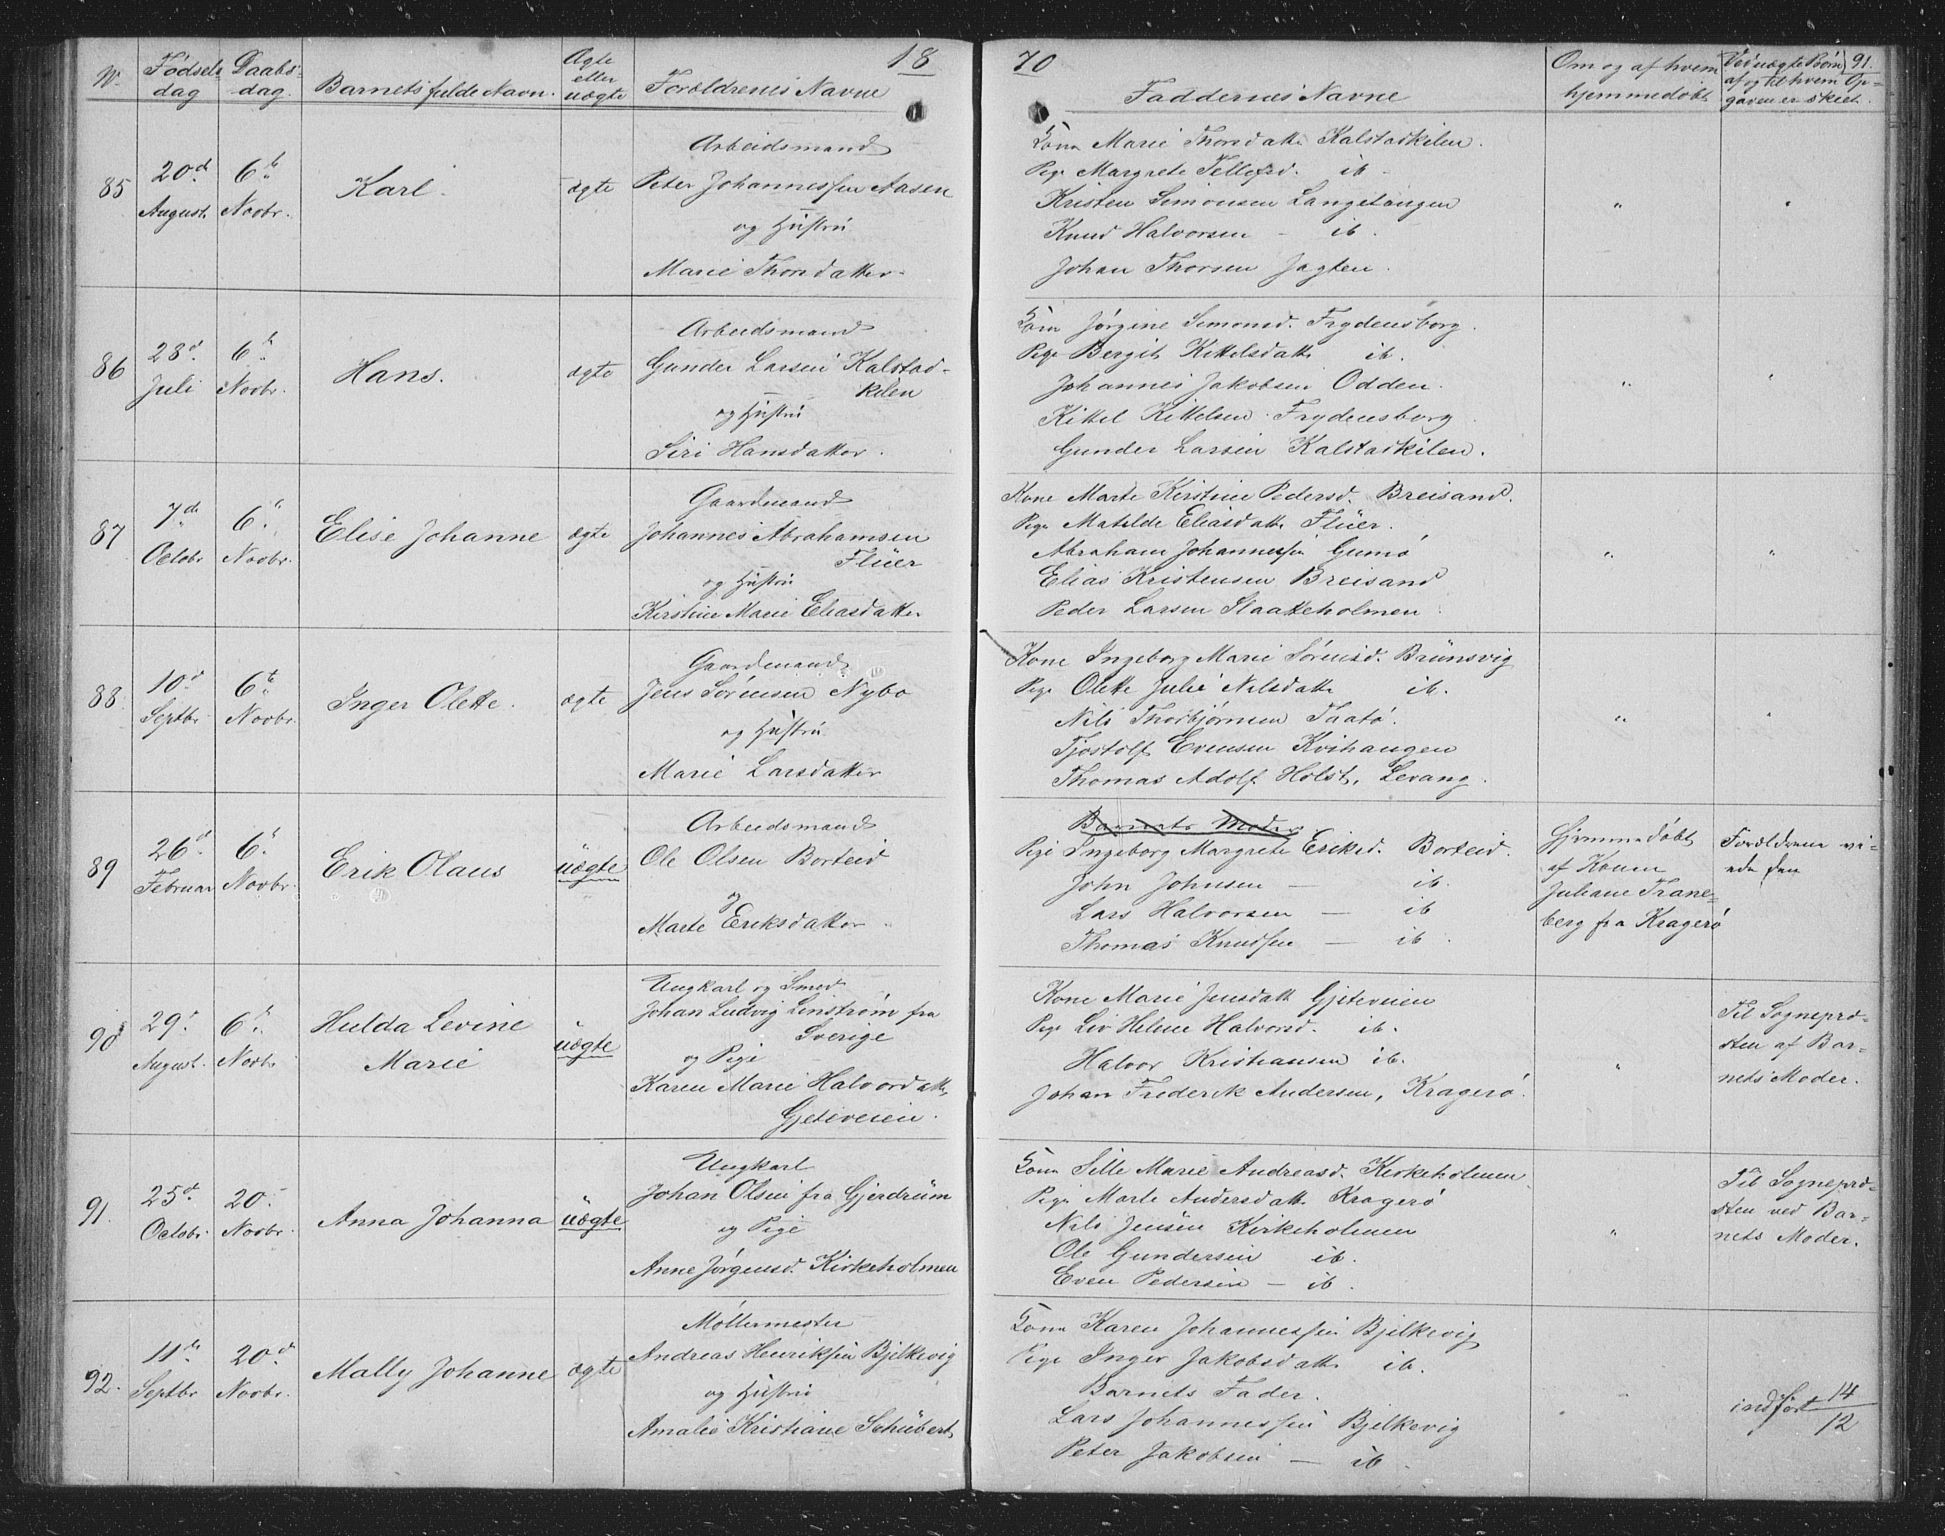 1870
91.
No. Fødselsdag Daabsdag. Barnets fulde Navn. Ægte eller uægte Forældrenes Navne Faddernes Navne Om og af hvem hjemmedøbt Ved uægte Børn af og til hvem Opgaven er skeet.
85 20de August 6te Novbr. Karl. ægte
Arbeidsmand
Peter Johannessen Aasen
og Hustru
Marie Thorsdatter.
Kone Marie Thorsdatt. Kalstadkilen.
Pige Margrete Tellefsd. ib.
Kristen Simonsen Langetangen
Knud Halvorsen - ib.
Johan Thorsen Jagten.
86 28d. Juli 6te Novbr. Hans. ægte
Arbeidsmand
Gunder Larsen Kalstad-
kilen
og Hustru
Siri Hansdatter.
Kone Jørgine Simonsd. Frydensborg.
Pige Bergit Kittelsdatt. ib.
Johannes Jakobsen Odden.
Kittel Kittelsen Frydensborg
Gunder Larsen Kalstadkilen.
87 7de Octobr. 6te Novbr. Elise Johanne ægte
Gaardmand
Johannes Abrahamsen
Flüer
og Hustru
Kirstine Marie Eliasdatter
Kone Marte Kirstine Pedersd. Breisand.
Pige Matilde Eliasdatt. Flüer.
Abraham Johannessen Gumø
Elias Kristensen Breisand
Peder Larsen Slaatteholmen
88. 10d. Septbr. 6te Novbr. Inger Olette. ægte
Gaardmand
Jens Sørensen Nybo
og Hustru
Marie Larsdatter
Kone Ingeborg Marie Sørensd. Brünsvig
Pige Olette Julie Nilsdatt. ib.
Nils Thorbjørnsen Taatø.
Tjostolf Evensen Kvihaugen
Thomas Adolf Holst, Levang.
89 26d. Februar 6te Novbr. Erik Olaus uægte
Arbeidsmand
Ole Olsen Borteid
og
Marte Eriksdatter.
Barnets Moder
Pige Ingeborg Margrete Eriksd. Borteid.
John Johnsen - ib.
Lars Halvorsen - ib
Thomas Knudsen - ib.
Hjemmedøbt
af Konen
Juliane Trane-
berg fra Kragerø
Forældrene vi-
ede den
90 29d. August. 6te Novbr. Hulda Levine
Marie
uægte
Ungkarl og Smed
Johan Ludvig Linstrøm fra
Sverige
og Pige
Karen Marie Halvordatt.
Gjeteveien.
Kone Marie Jensdatt. Gjeteveien
Pige Liv Helene Halvorsd. ib.
Halvor Kristiansen ib.
Johan Frederik Andersen, Kragerø.
Til Sognepræ-
sten af Bar-
nets Moder.
91. 25d. Octobr. 20de Novbr. Anna Johanna uægte
Ungkarl
Johan Olsen fra Gjerdrüm
og Pige
Anne Jørgensd. Kirkeholmen
Kone Sille Marie Andreasd. Kirkeholmen
Pige Marte Andersdatt. Kragerø
Nils Jensen Kirkeholmen
Ole Gundersen ib.
Even Pedersen - ib.
Til Sognepræ-
sten ved Bar-
nets Moder.
92. 11te Septbr. 20de Novbr. Mally Johanne ægte
Møllermester
Andreas Henriksen Bjelkevig
og Hustru
Amalie Kristiane Schübert
Kone Karen Johannessen Bjelkevig
Pige Inger Jakobsdatt. ib.
Barnets Fader.
Lars Johannessen Bjelkevig
Peter Jakobsen - ib.
indført 14/12